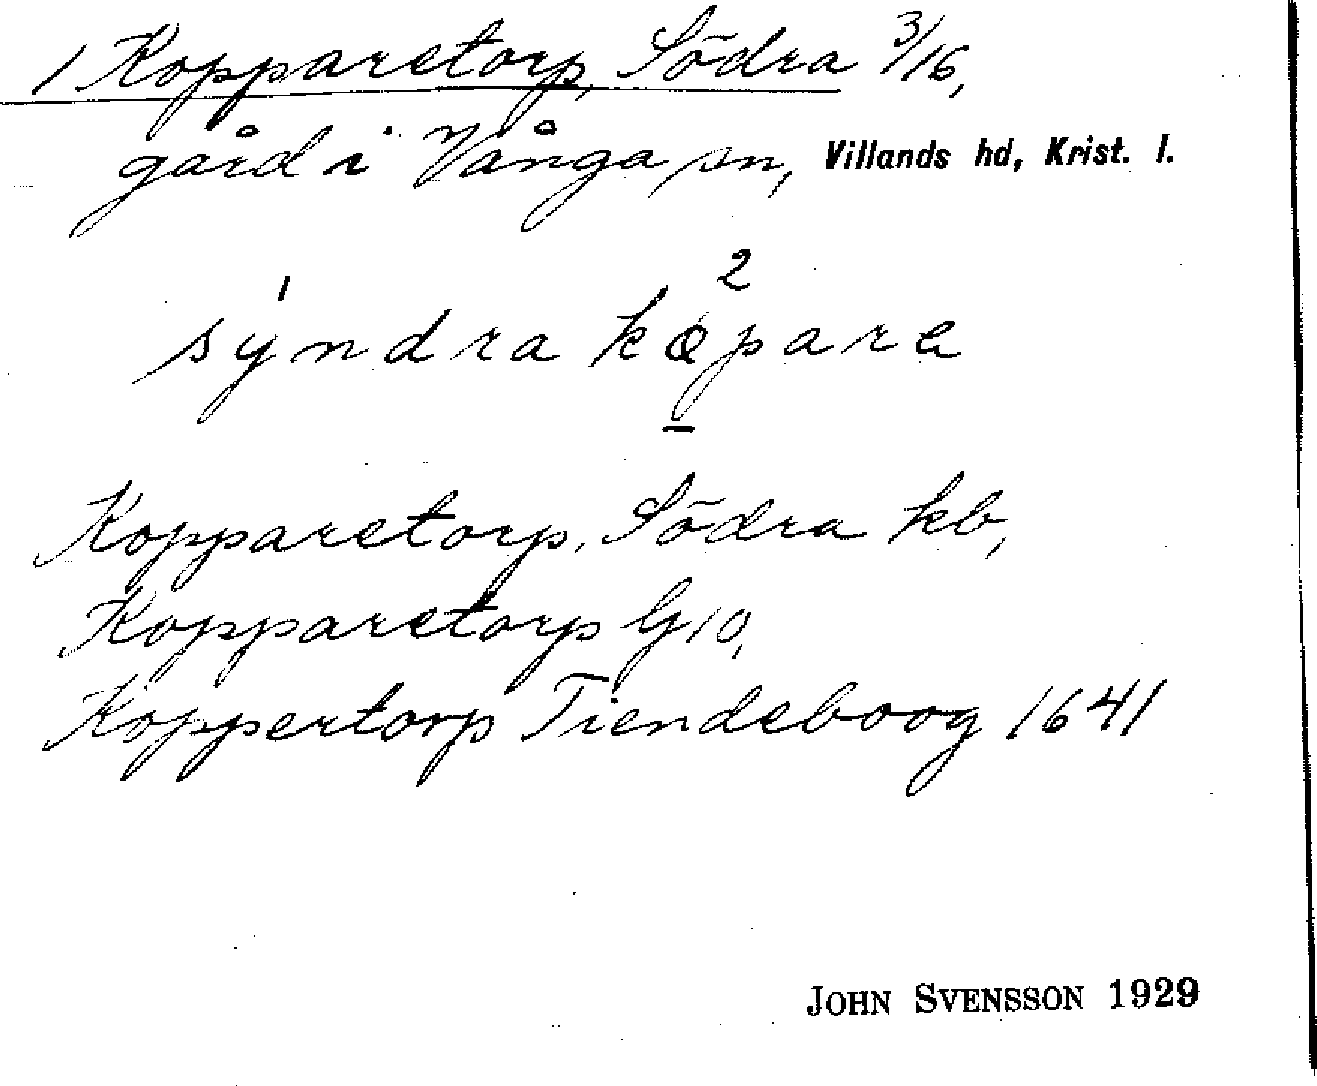 1 Kopparetorp, Södra 3/16,
gård i Vånga sn, Villands hd, Krist. l.
1 2
sýndra kɵpara
Kopparetorp, Södra kb,
Kopparetorp G 10,
Koppertorp Tiendeboog 1641
JOHN SVENSSON 1929